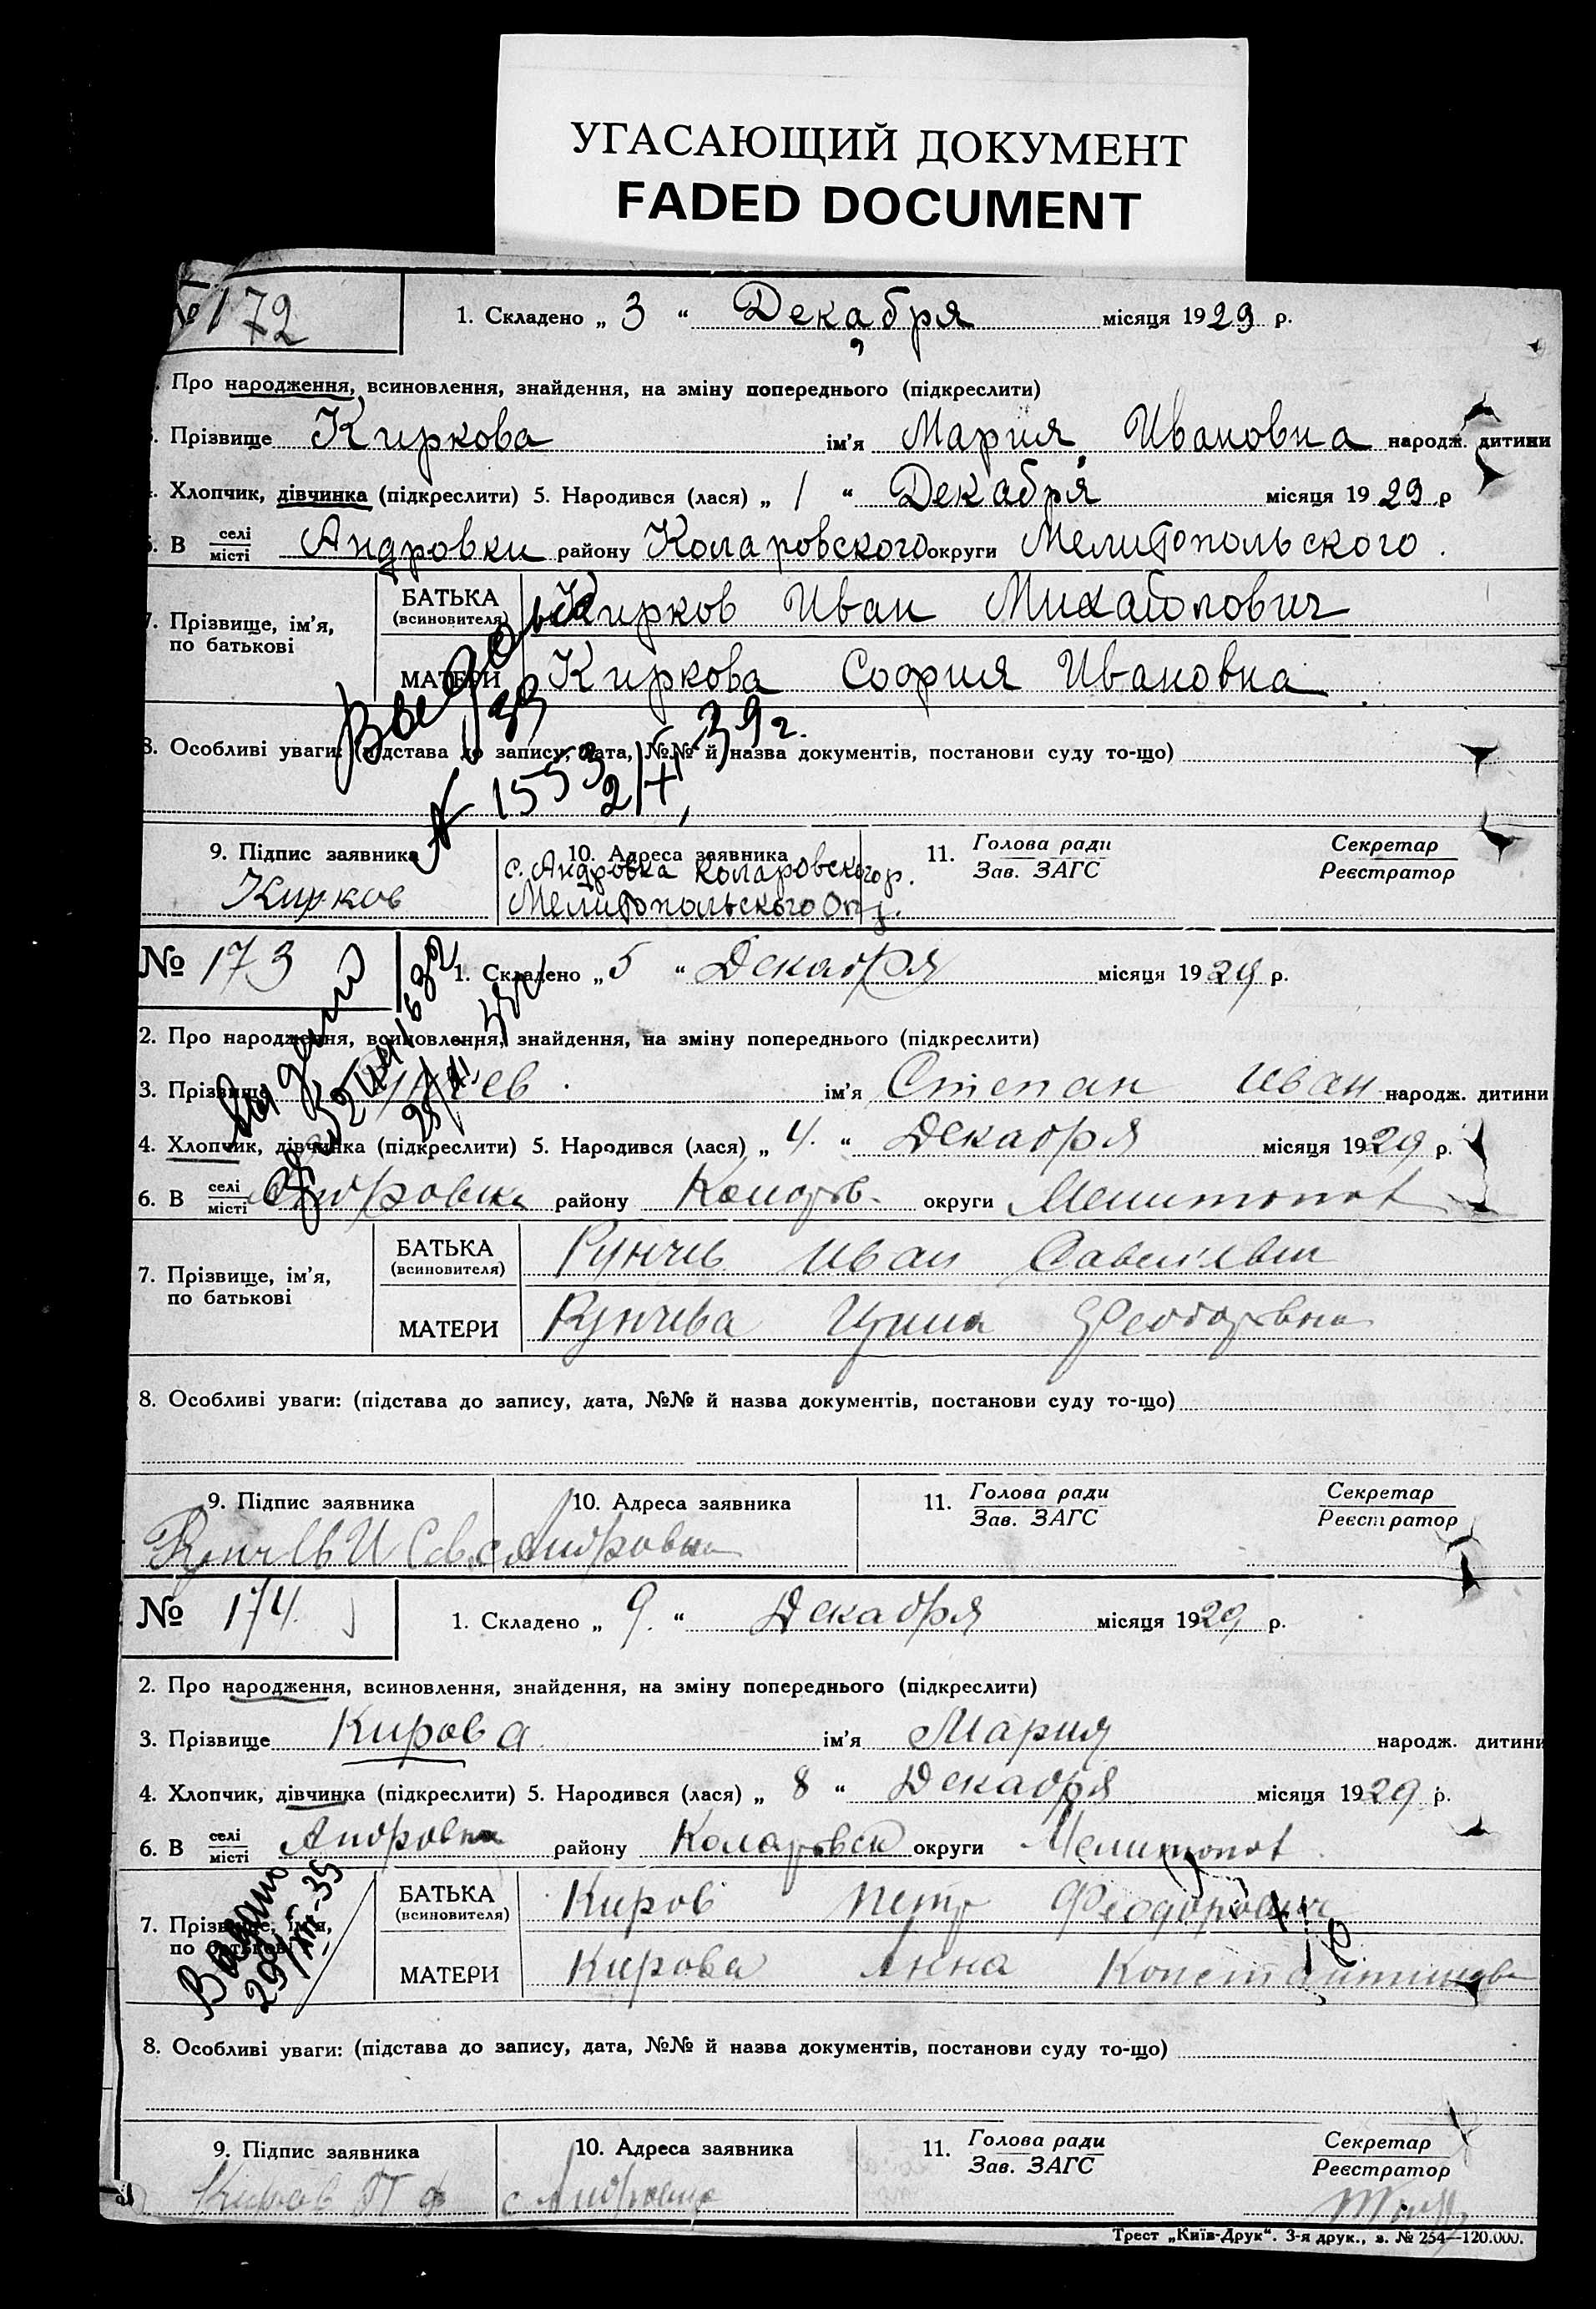 УГАСАЮЩИЙ ДОКУМЕНТ
FADED DOCUMENT
№ 172
1. Складено „ 3 “ Декабря місяця 1929 р.
Про народження, всиновлення, знайдення, на зміну попереднього (підкреслити)
Прізвище Киркова ім'я Мария Ивановна народж. дитини
Хлопчик, дівчинка (підкреслити) 5. Народився (лася) „ 1 “ Декабря місяця 1929 р
6. В селі місті Андровки району Коларовского округи Мелитопольского.
7. Прізвище, ім'я, по батькові
БАТЬКА (всиновителя) Кирков Иван Михайлович
МАТЕРИ Киркова София Ивановна
8. Особливі уваги: (підстава до запису, дата, №№ й назва документів, постанови суду то-що)
39 г.
9. Підпис заявника
Кирков
10. Адреса заявника
с. Андровка Коларовского р.
Мелитопольского
11. Голова ради
Зав. ЗАГС
Секретар
Реєстратор
№ 173
1. Складено „ 5 “ Декабря місяця 1929 р.
2. Про народження, всиновлення, знайдення, на зміну попереднього (підкреслити)
3. Прізвище ім'я Степан Иван народж. дитини
4. Хлопчик, дівчинка (підкреслити) 5. Народився (лася) „ 4. “ Декабря місяця 1929 р.
6. В селі місті Андровка району округи Мелитопол
7. Прізвище, ім'я, по батькові
БАТЬКА (всиновителя) Рунчев Иван
МАТЕРИ Рунчева Феодоровна
8. Особливі уваги: (підстава до запису, дата, №№ й назва документів, постанови суду то-що)
9. Підпис заявника
10. Адреса заявника
Андровка
11. Голова ради
Зав. ЗАГС
Секретар
Реєстратор
№ 174.
1. Складено „ 9. “ Декабря місяця 1929 р.
2. Про народження, всиновлення, знайдення, на зміну попереднього (підкреслити)
3. Прізвище Кирова ім'я Мария народж. дитини
4. Хлопчик, дівчинка (підкреслити) 5. Народився (лася) „ 8 “ Декабря місяця 1929 р.
6. В селі місті Андровка району Коларовск округи Мелитопол
Видано
7. Прізвище, ім'я, по батькові
БАТЬКА (всиновителя) Киров Петр Феодорович
МАТЕРИ Кирова Анна
8. Особливі уваги: (підстава до запису, дата, №№ й назва документів, постанови суду то-що)
9. Підпис заявника
Киров П Ф
10. Адреса заявника
с Андровка
11. Голова ради
Зав. ЗАГС
Секретар
Реєстратор
Трест „Київ-Друк“. 3-я друк., з. № 254—120.000.